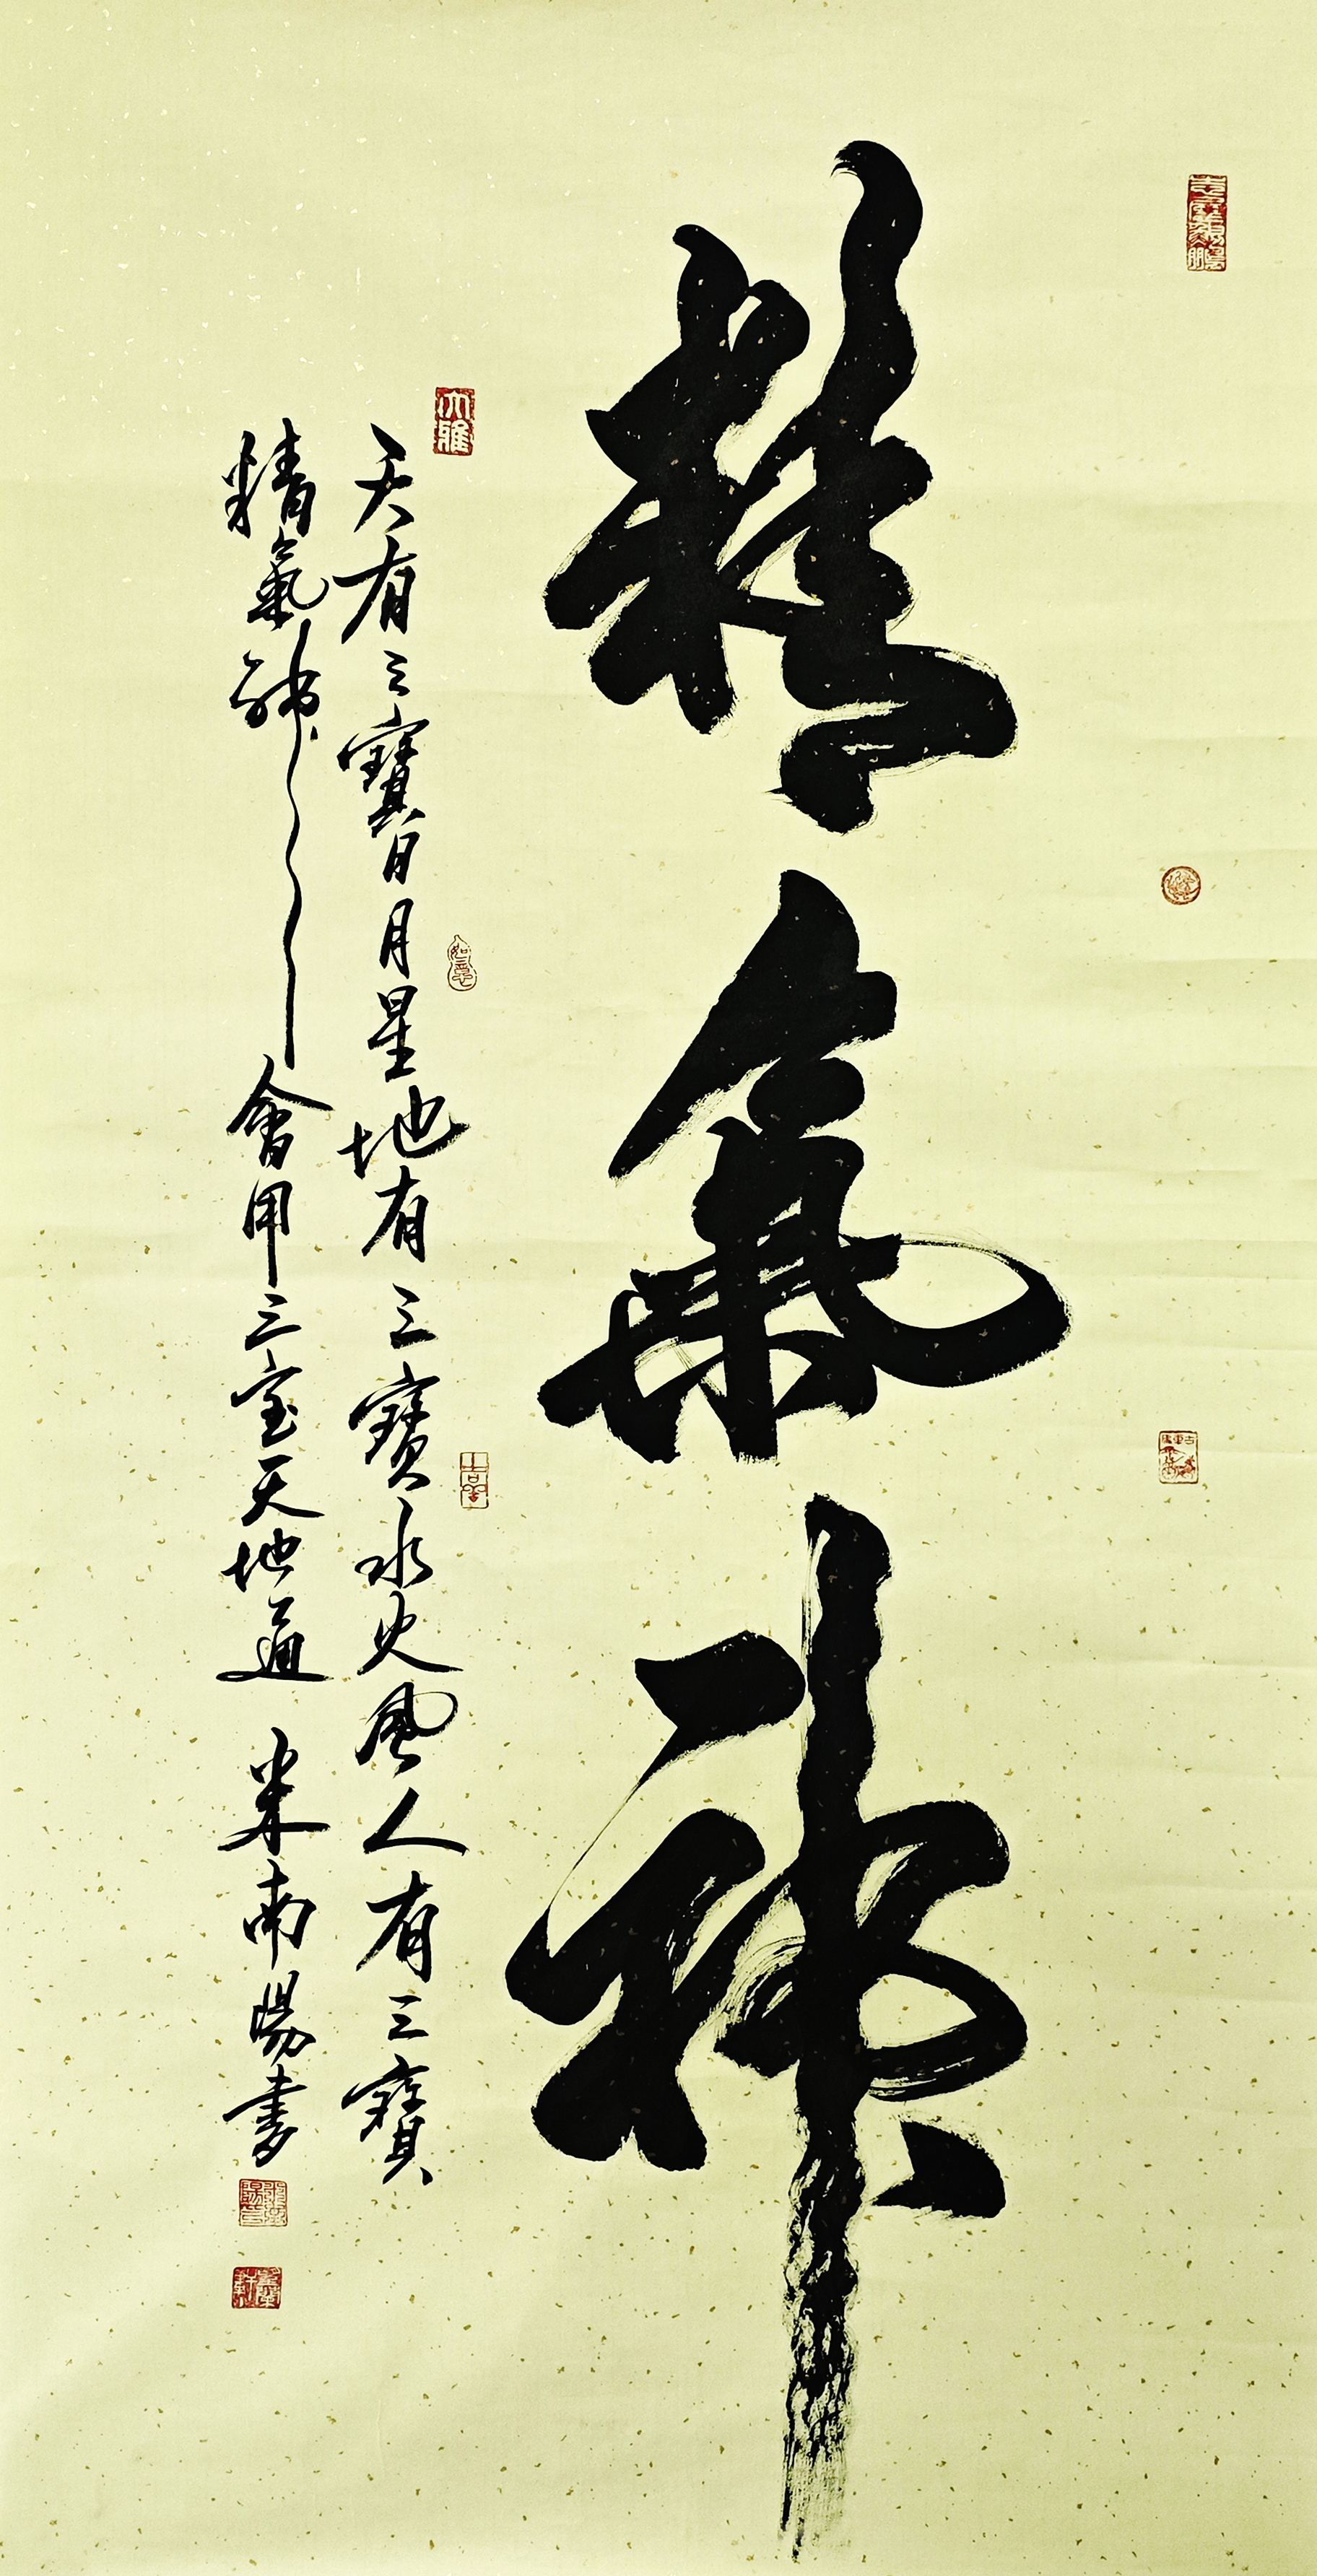 精氣神
天有三寶日月星地有三寶水火風人有三寶
精氣神會用三宝天地通 米南陽書
大雅
如意